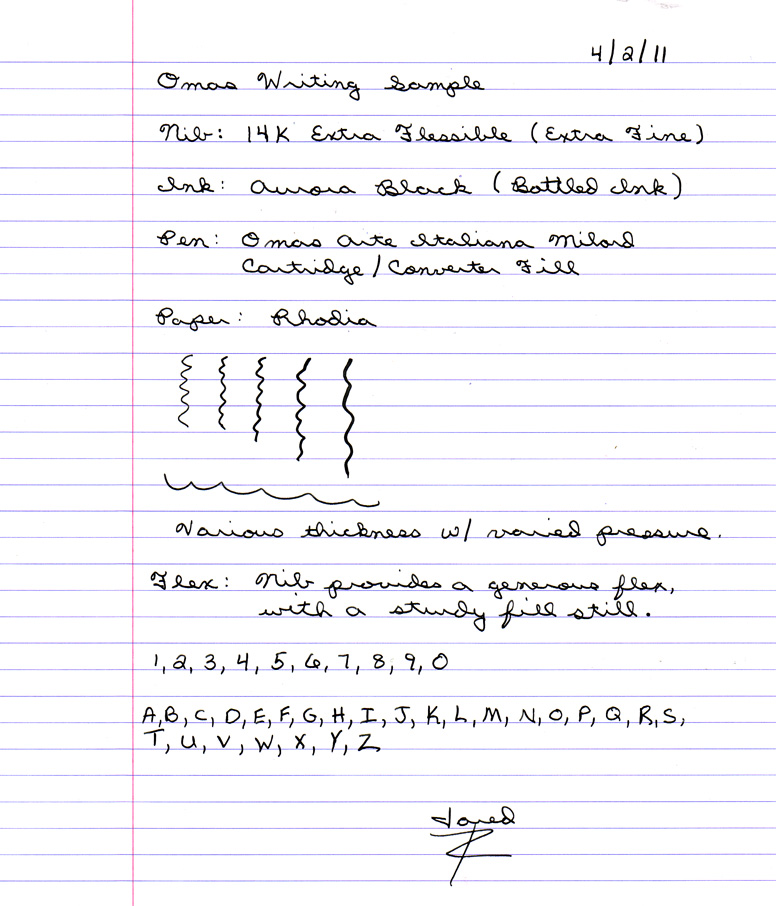 4/2/11
Omas Writing Sample
Nib: 14K Extra Flessible (Extra Fine)
Ink: Aurora Black (Bottled Ink)
Pen: Omas Arte Italiana Milord
Cartridge/Converter Fill
Paper: Rhodia
Various thickness w/ varied pressure.
Flex: Nib provides a generous flex,
with a sturdy fill still.
1, 2, 3, 4, 5, 6, 7, 8, 9, 0
A, B, C, D, E, F, G, H, I, J, K, L, M, N, O, P, Q, R, S,
T, U, V, W, X, Y, Z
Jared